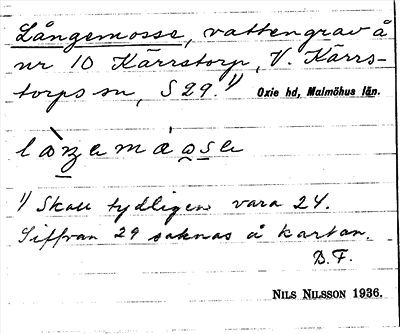 Långemosse, vattengrav å
nr 10 Kärrstorp, V. Kärrs-
torps sn, S 29.¹⁾ Oxie hd, Malmöhus län.
¹⁾ Skall tydligen vara 24.
Siffran 29 saknas å kartan.
D.F.
NILS NILSSON 1936.